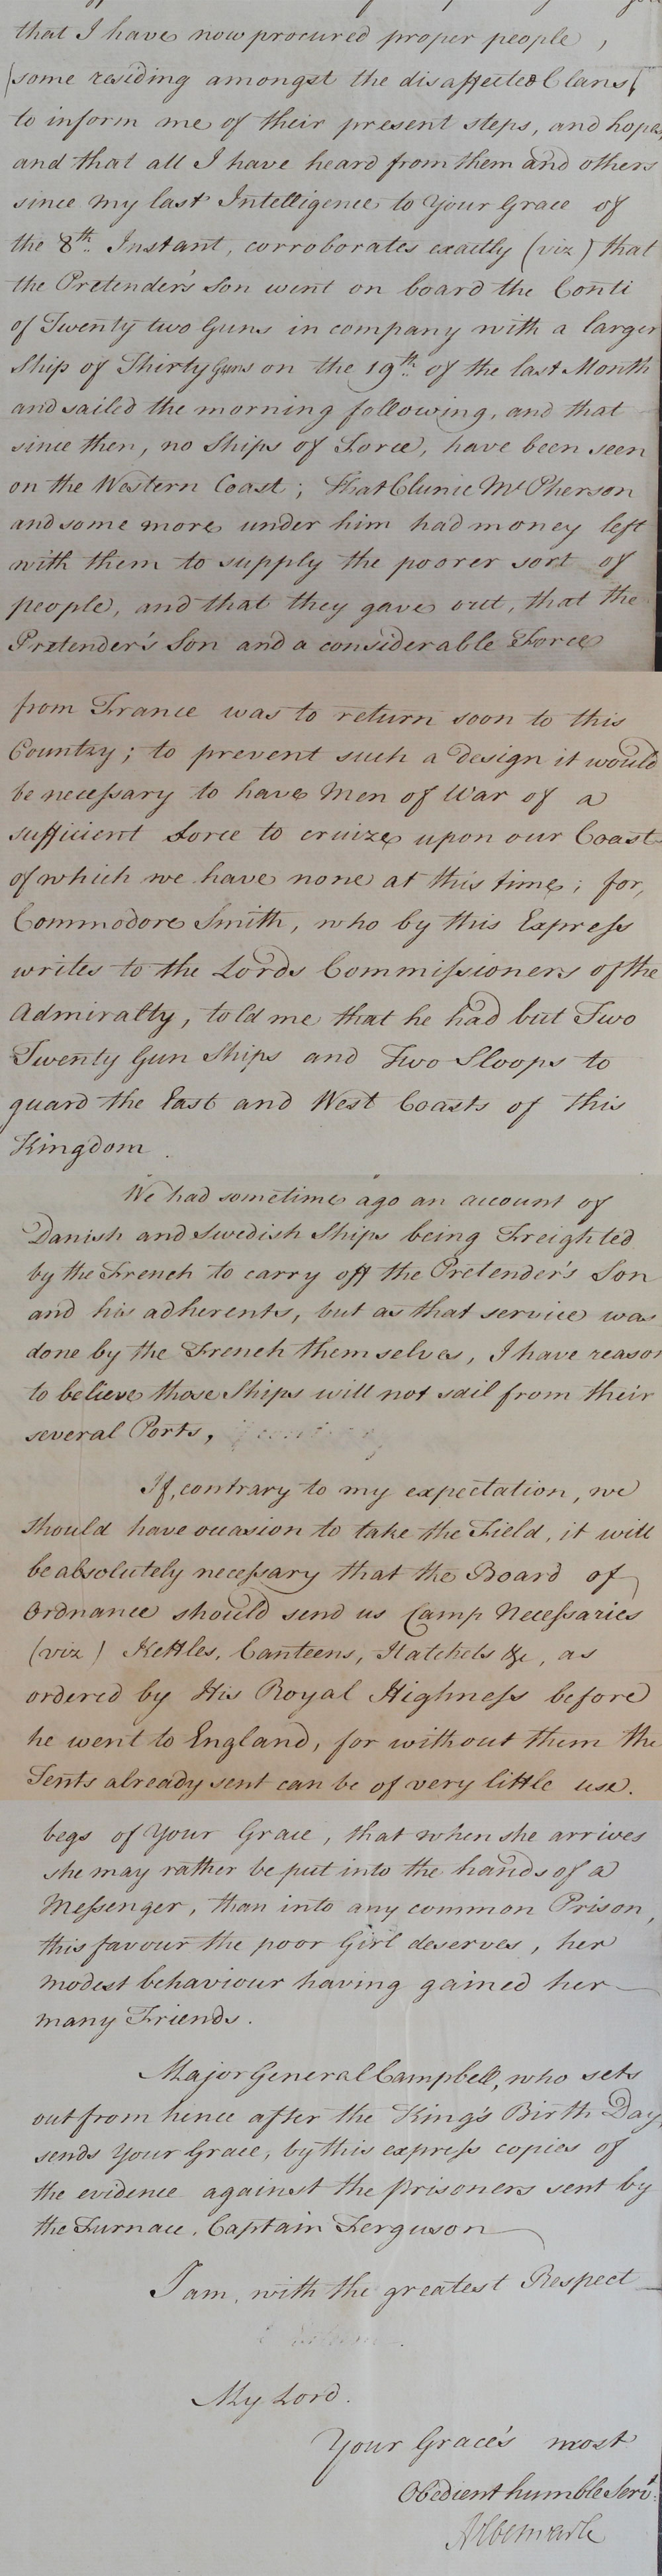 that I have now procured proper people,
(some residing amongst the disaffected Clans)
to inform me of their present steps, and hopes,
and that all I have heard from them and others
since my last Intelligence to Your Grace of
the 8th. Instant, corroborates exactly (viz) that
the Pretender's Son went on board the Conti
of Twenty two Guns in company with a larger
Ship of Thirty Guns on the 19th. of the last Month
and sailed the morning following, and that
since then, no Ships of Force, have been seen
on the Western Coast; That Clunie McPherson
and some more under him had money left
with them to supply the poorer sort of
people, and that they gave out, that the
Pretender's Son and a considerable Force
from France was to return soon to this
Country; to prevent such a Design it would
be necessary to have Men of War of a
sufficient Force to cruize upon our Coasts
of which we have none at this time; for,
Commodore Smith, who by this Express
writes to the Lords Commissioners of the
Admiralty, told me that he had but Two
Twenty Gun Ships and Two Sloops to
guard the East and West Coasts of this
Kingdom.
We had sometime ago an account of
Danish and Swedish Ships being Freighted
by the French to carry off the Pretender's Son
and his adherents, but as that service was
done by the French themselves, I have reason
to believe those Ships will not sail from their
several Ports,
If, contrary to my expectation, we
should have occasion to take the Field, it will
be absolutely necessary that the Board of
Ordnance should send us Camp Necessaries
(viz) Kettles, Canteens, Hatchets &c, as
ordered by His Royal Highness before
he went to England, for without them the
Tents already sent can be of very little use.
begs of Your Grace, that when she arrives
she may rather be put into the hands of a
Messenger, than into any common Prison,
this favour the poor Girl deserves, her
modest behaviour having gained her
many Friends.
Major General Campbell, who sets
out from hence after the King's Birth Day,
sends Your Grace, by this express copies of
the evidence against the prisoners sent by
the Furnace, Captain Ferguson
I am, with the greatest Respect
My Lord.
Your Grace's most
Obedient humble Servt.
Albemarle